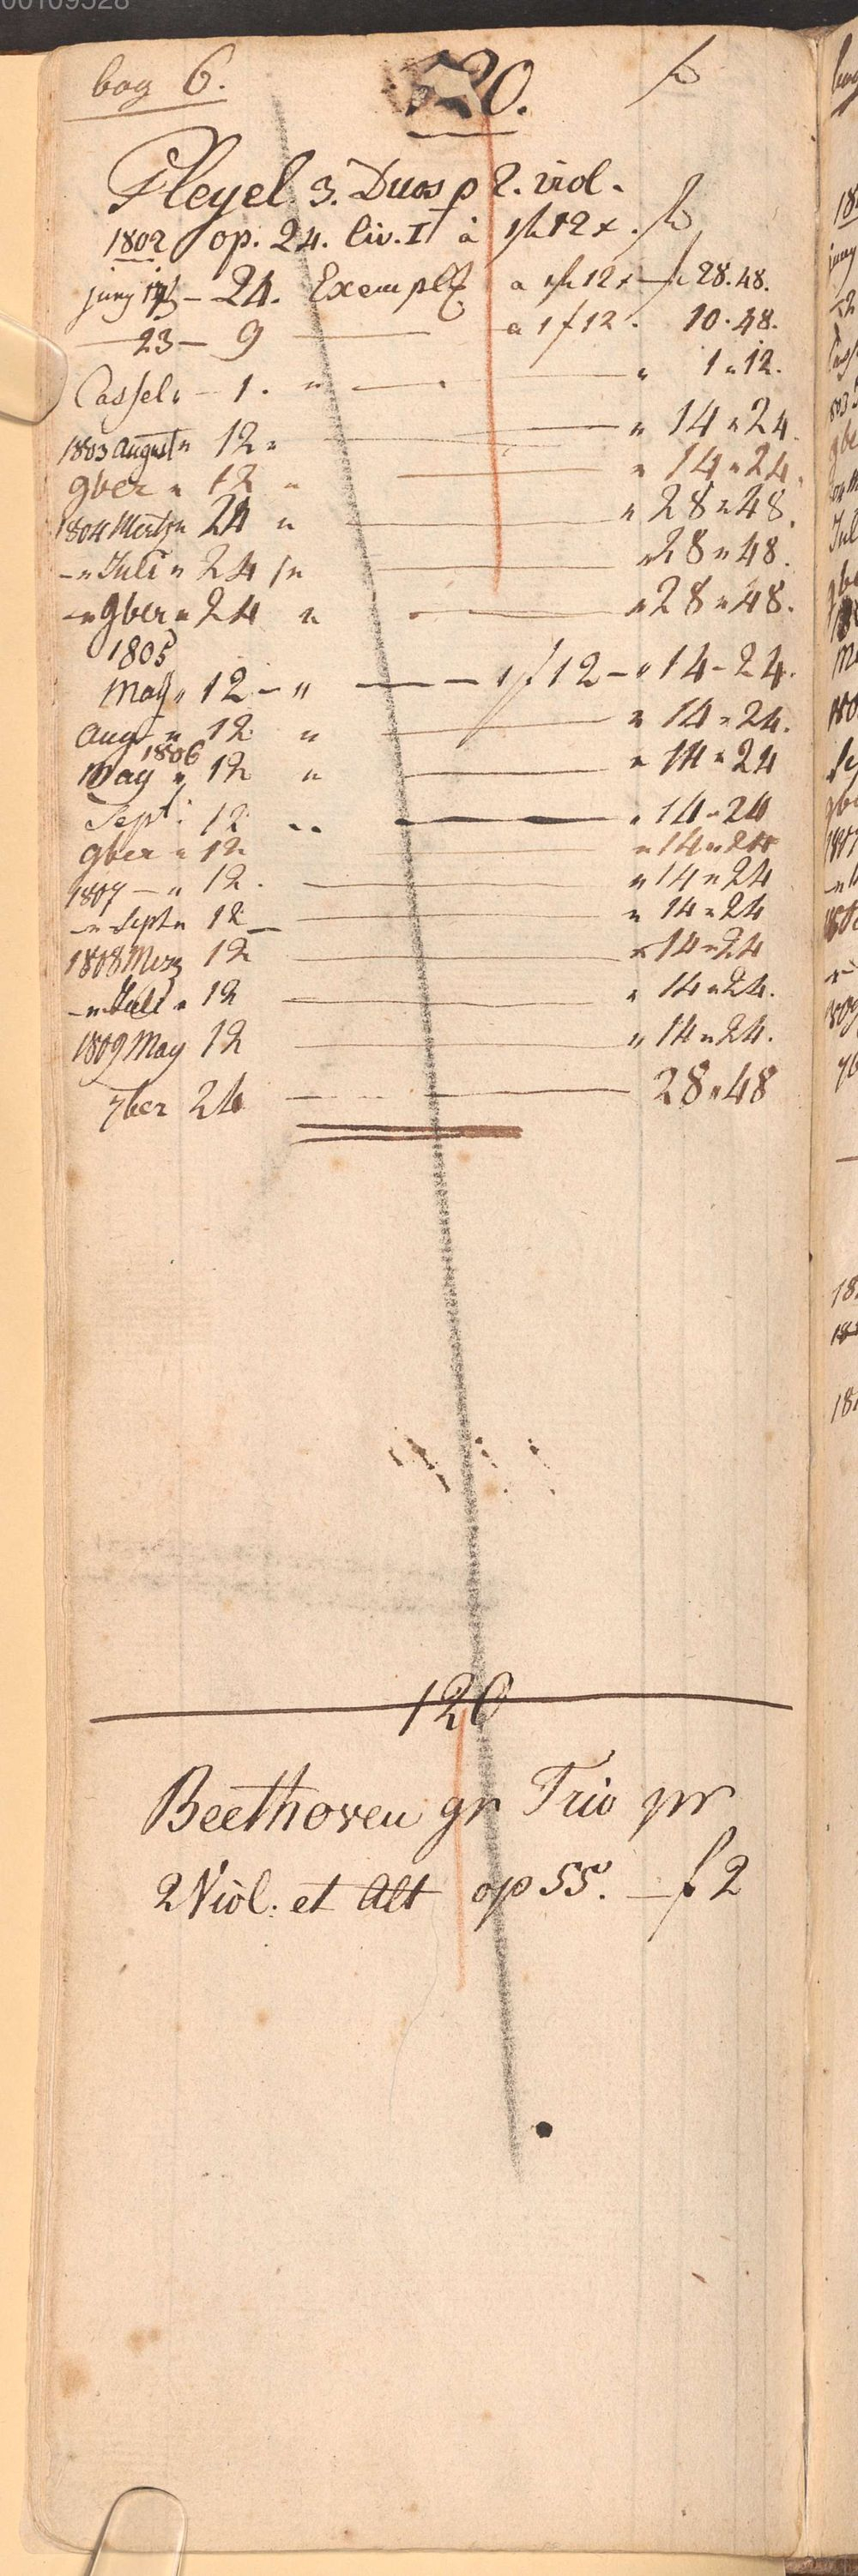 00109528
bog 6. 120.
Pleyel. 3. Duos p 2. viol.
1802 op. 24. liv. I à 1 f 12 x.
juny 17 – 24. Exempl a 1 f 12 x – f 28.48.
— 23 — 9 — a 1 f 12. 10.48.
Cassel „ – 1. „ — „ 1„12.
1803 August „ 12 „ — „ 14„24.
9ber „ 12 „ — „ 14„24.
1804 Mertz „ 24 „ — „ 28„48.
–„ Juli „ 24 „ — „ 28„48.
–„ 9ber „ 24 „ — „ 28„48.
1805
May „ 12 – „ — 1 f 12 – „ 14–24.
Aug „ 12 „ — „ 14„24.
1806
May „ 12 „ — „ 14„24
Sept: 12 „ — „ 14–24
9ber „ 12 — „ 14„24
1807 – „ 12. — „ 14„24
–„ Sept „ 12 — „ 14„24
1808 Merz 12 — „ 14„24
–„ Juli „ 12 — „ 14„24.
1809 May 12 — „ 14„24.
7ber 24 — 28„48
120
Beethoven gr Trio pr
2 Viol. et Alt op 55. – f 2